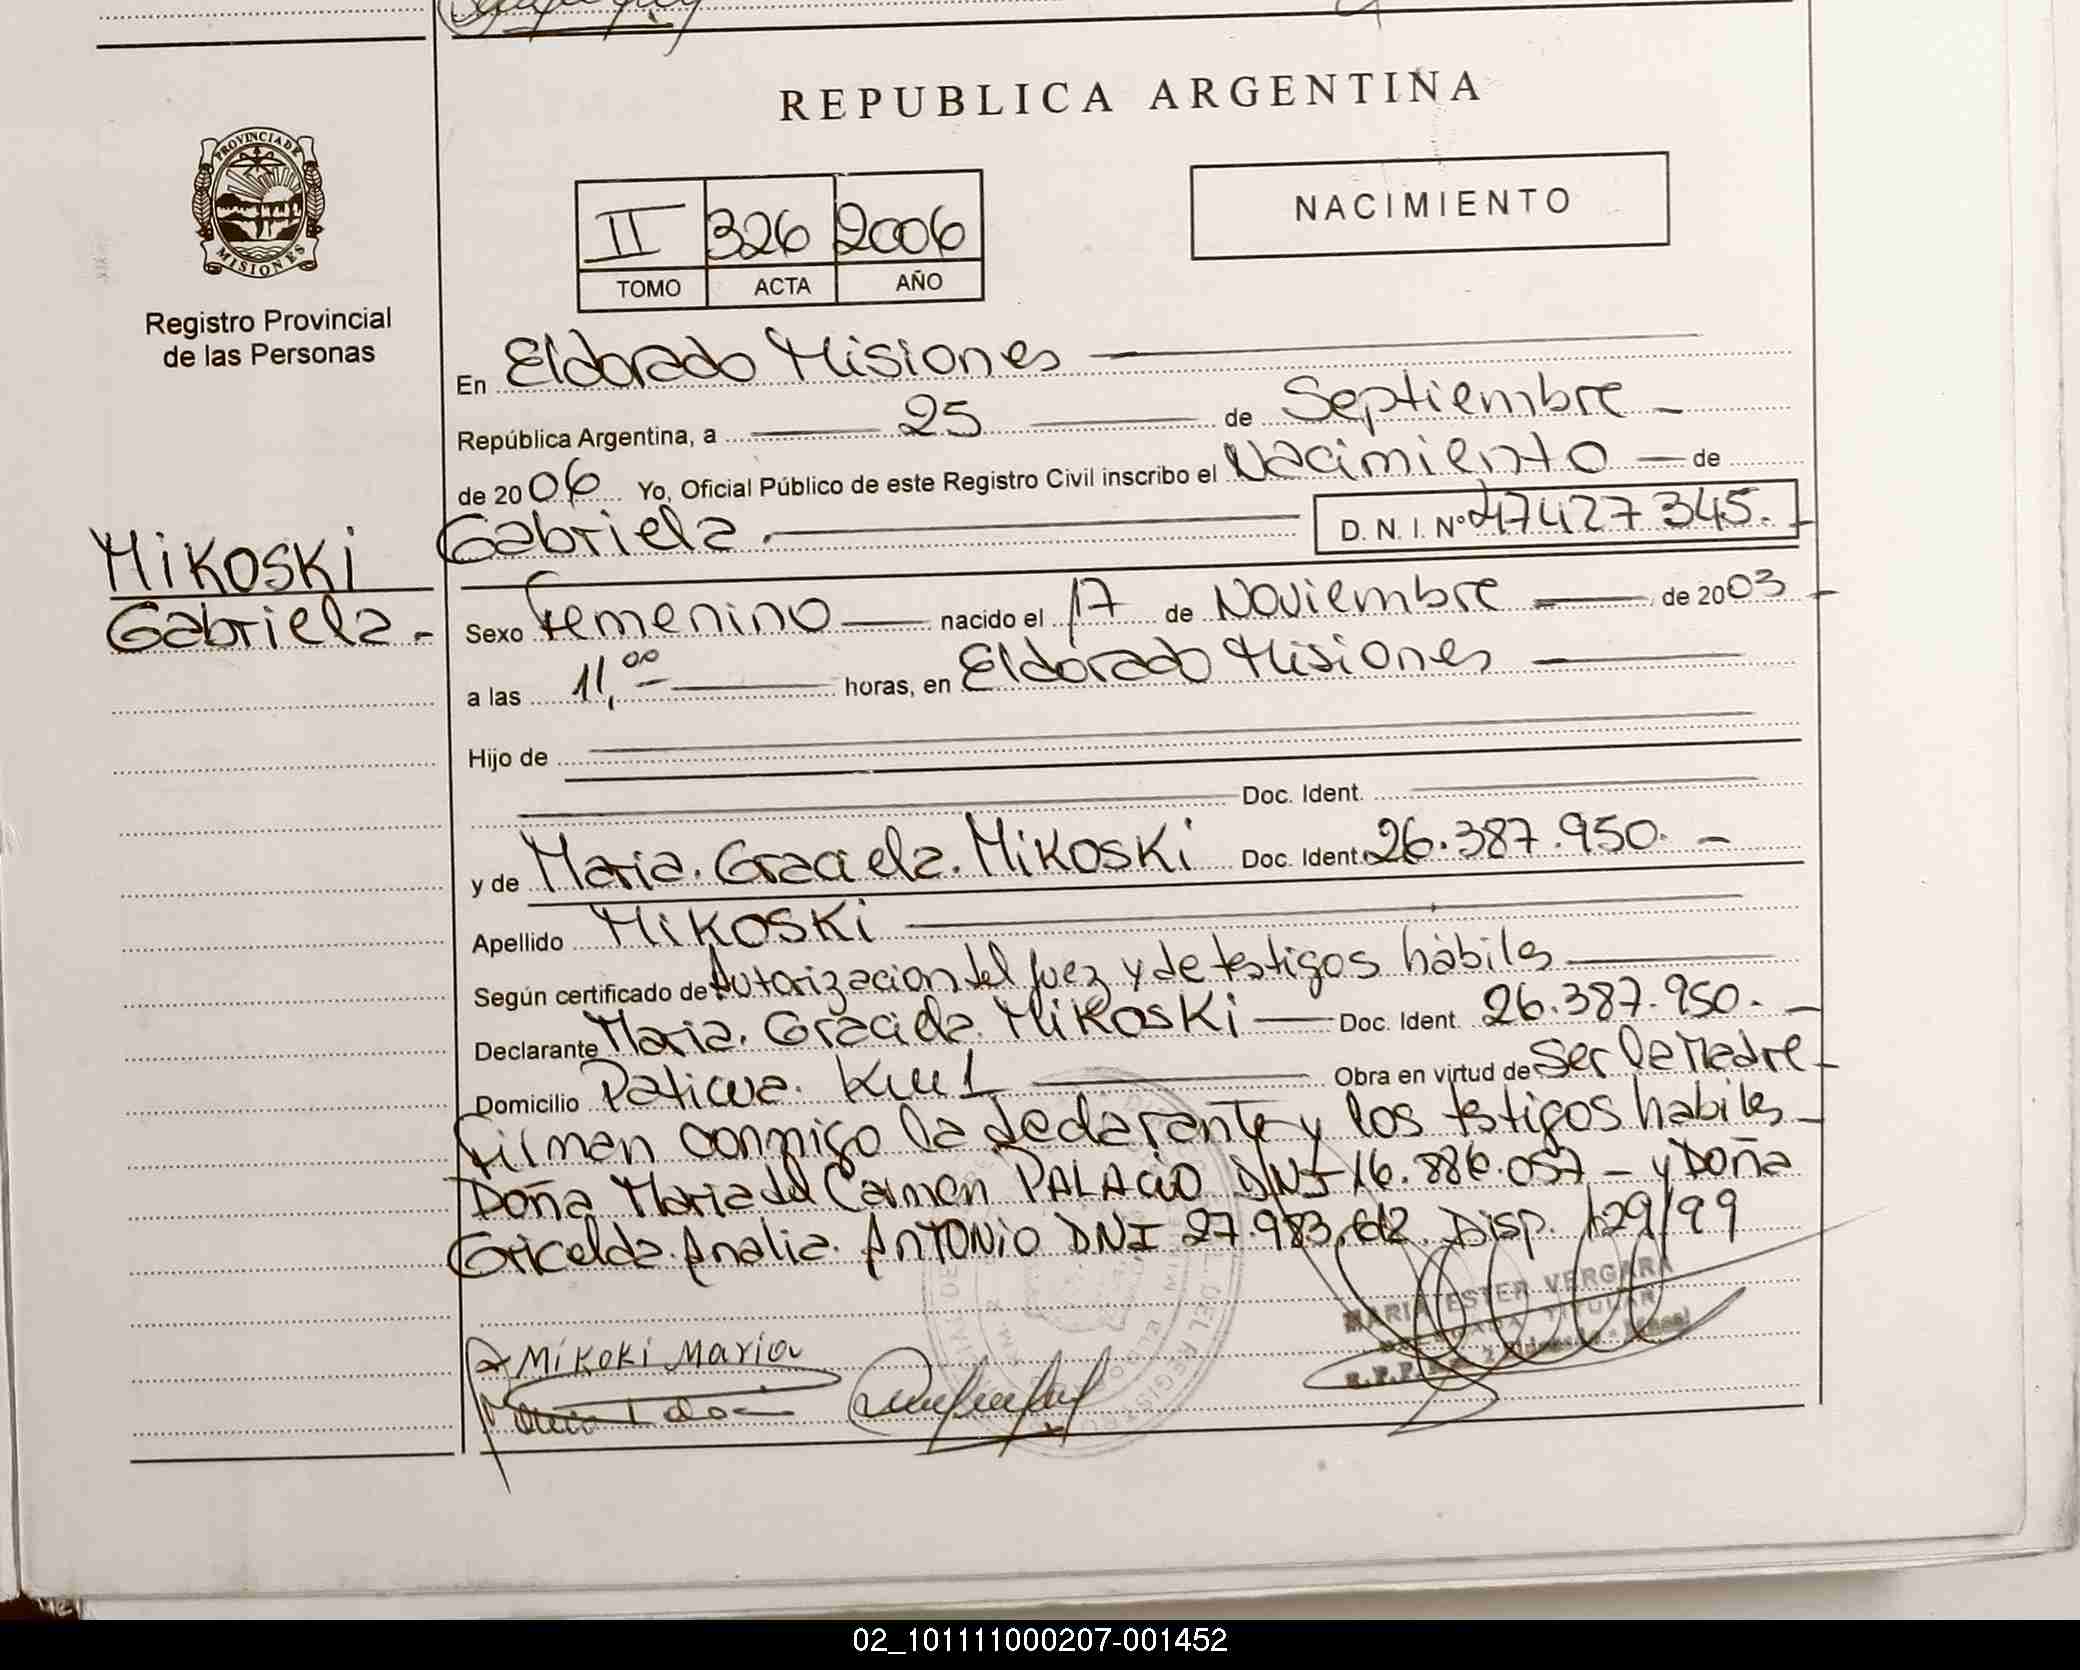 REPUBLICA ARGENTINA
PROVINCIA DE
MISIONES
Registro Provincial
de las Personas
II 326 2006
TOMO ACTA AÑO
NACIMIENTO
En Eldorado Misiones
República Argentina, a 25 de Septiembre
de 2006 Yo, Oficial Público de este Registro Civil inscribo el Nacimiento de
Mikoski
Gabriela D. N. I. Nº 47427345.
Gabriela.-
Sexo Femenino nacido el 17 de Noviembre de 2003
a las 11,00 horas, en Eldorado Misiones
Hijo de
Doc. Ident.
y de Maria. Graciela. Mikoski Doc. Ident. 26.387.950.-
Apellido Mikoski
Según certificado de Autorizacion del Juez y de testigos hábiles
Declarante Maria. Graciela. Mikoski Doc. Ident. 26.387.950.-
Domicilio Paticua. Km 1 Obra en virtud de Ser la Madre
Firman conmigo la declarante y los testigos habiles
Doña Maria del Carmen PALACIO DNI 16.886.057 - y Doña
Gricelda. Analia. ANTONIO DNI 27.983.612. Disp. 129/99
MARIA ESTER VERGARA
TITULAR
Mikoki Maria
02_101111000207-001452